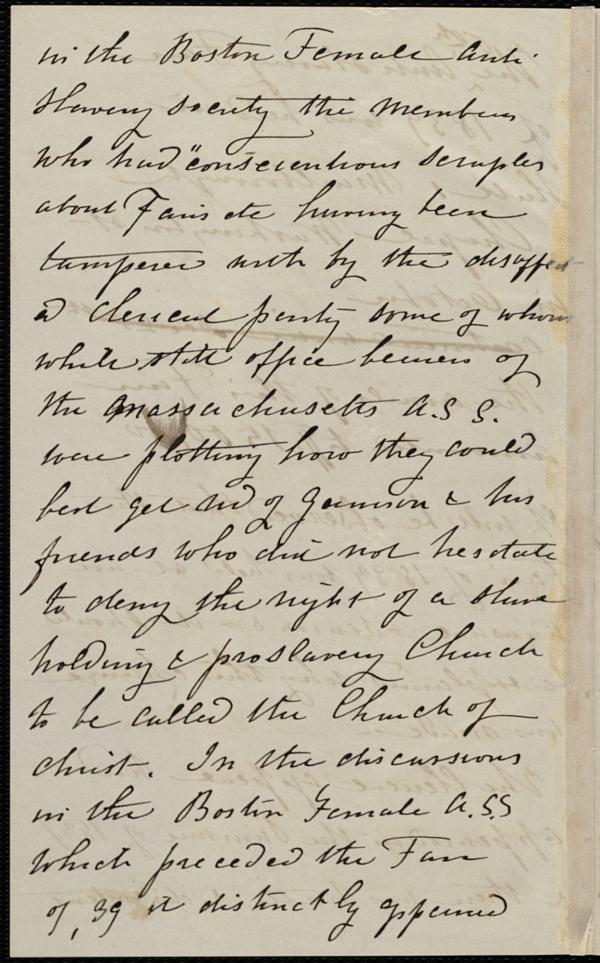 in the Boston Female Anti
Slavery Society the members
who had "conscientious scruples
about Fairs etc having been
tampered with by the disaffect
ed Clerical party some of whom
while still office bearers of
the Massachusetts A.S S.
were plotting how they could
best get rid of Garrison & his
friends who did not hesitate
to deny the right of a slave
holding & proslavery Church
to be called the Church of
Christ. In the discussions
in the Boston Female A.S.S
which preceded the Fair
of, 39 it distinctly appeared